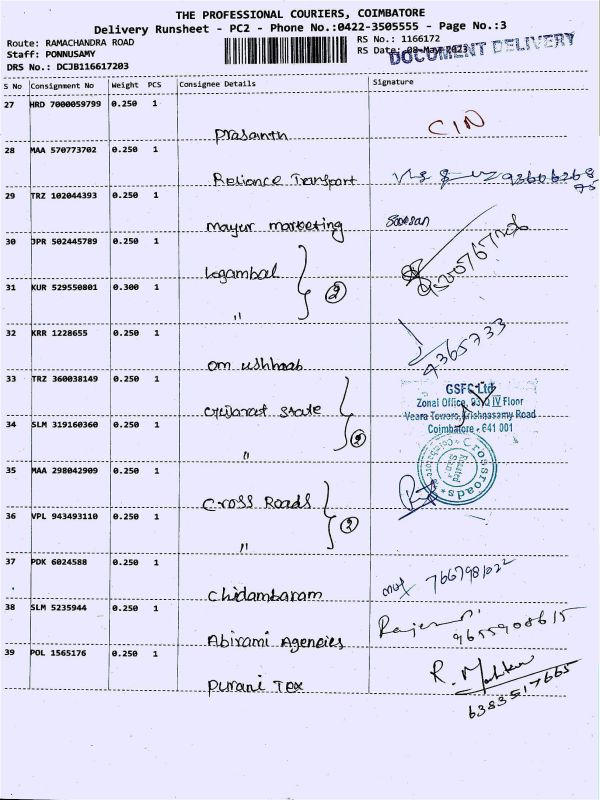 THE PROFESSIONAL COURIERS, COIMBATORE
Delivery Runsheet - PC2 - Phone No.:0422-3505555 - Page No.:3
Route: RAMACHANDRA ROAD
Staff: PONNUSAMY
DRS No.: DCJB116617203
RS No.: 1166172
RS Date: 08-May-2023
DOCUMENT DELIVERY
S No Consignment No Weight PCS Consignee Details Signature
27 HRD 7000059799 0.250 1
Prasanth CIN
28 MAA 570773702 0.250 1
Reliance Transport
29 TRZ 102044393 0.250 1
mayur marketing
30 JPR 502445789 0.250 1
Logambal
31 KUR 529550801 0.300 1
2
"
32 KRR 1228655 0.250 1
om
33 TRZ 360038149 0.250 1
Gujarat state
GSFC Ltd
Zonal Office, IV Floor
Veera Towers, Krishnasamy Road
Coimbatore - 641 001
34 SLM 319160360 0.250 1
" 2
35 MAA 298042909 0.250 1
Cross Roads
Crossroads * Coimbatore
36 VPL 943493110 0.250 1
2
"
37 PDK 6024588 0.250 1
Chidambaram
38 SLM 5235944 0.250 1
Abirami Agencies 9655908615
39 POL 1565176 0.250 1
Purani Tex
6383517665